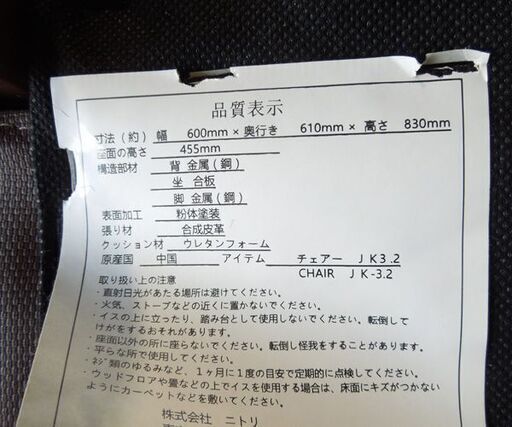 品質表示
寸法(約) 幅 600mm×奥行き 610mm×高さ 830mm
座面の高さ 455mm
構造部材 背 金属(鋼)
坐 合板
脚 金属(鋼)
表面加工 粉体塗装
張り材 合成皮革
クッション材 ウレタンフォーム
原産国 中国 アイテム チェアー JK3.2
CHAIR JK-3.2
取り扱い上の注意
・直射日光があたる場所は避けてください。
・火気、ストーブなどの近くに置かないでください。
・イスの上に立ったり、踏み台として使用しないでください。転倒して
けがをするおそれがあります。
・座面以外の所に座らないでください。転倒し怪我をすることがあります。
・平らな所で使用してください。
・ネジ類のゆるみなど、1ヶ月に1度の目安で定期的に点検してください。
・ウッドフロアや畳などの上でイスを使用する場合は、床面にキズがつかない
ようにカーペットなどを敷いてください。
株式会社 ニトリ